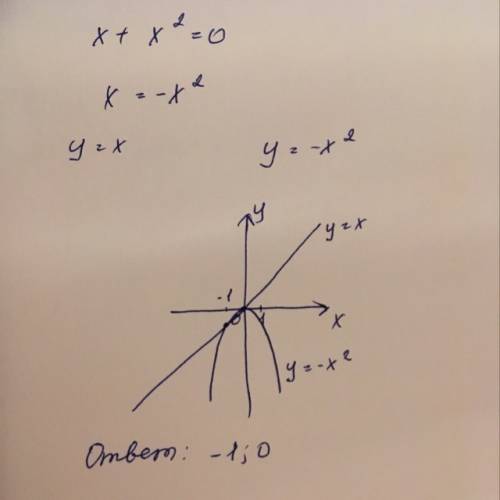 x + x² = 0
x = -x²
y = x y = -x²
y
y = x
-1 0 1 x
y = -x²
Ответ: -1; 0